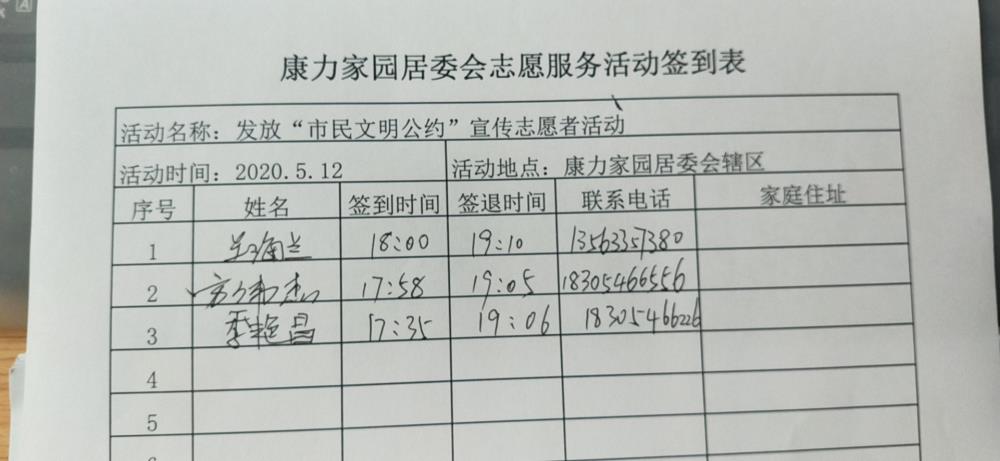 康力家园居委会志愿服务活动签到表
活动名称：发放“市民文明公约”宣传志愿者活动
活动时间：2020.5.12 活动地点：康力家园居委会辖区
序号 姓名 签到时间 签退时间 联系电话 家庭住址
1 18:00 19:10 13563357380
2 17:58 19:05 18305466556
3 季艳昌 17:35 19:06 18305466226
4
5